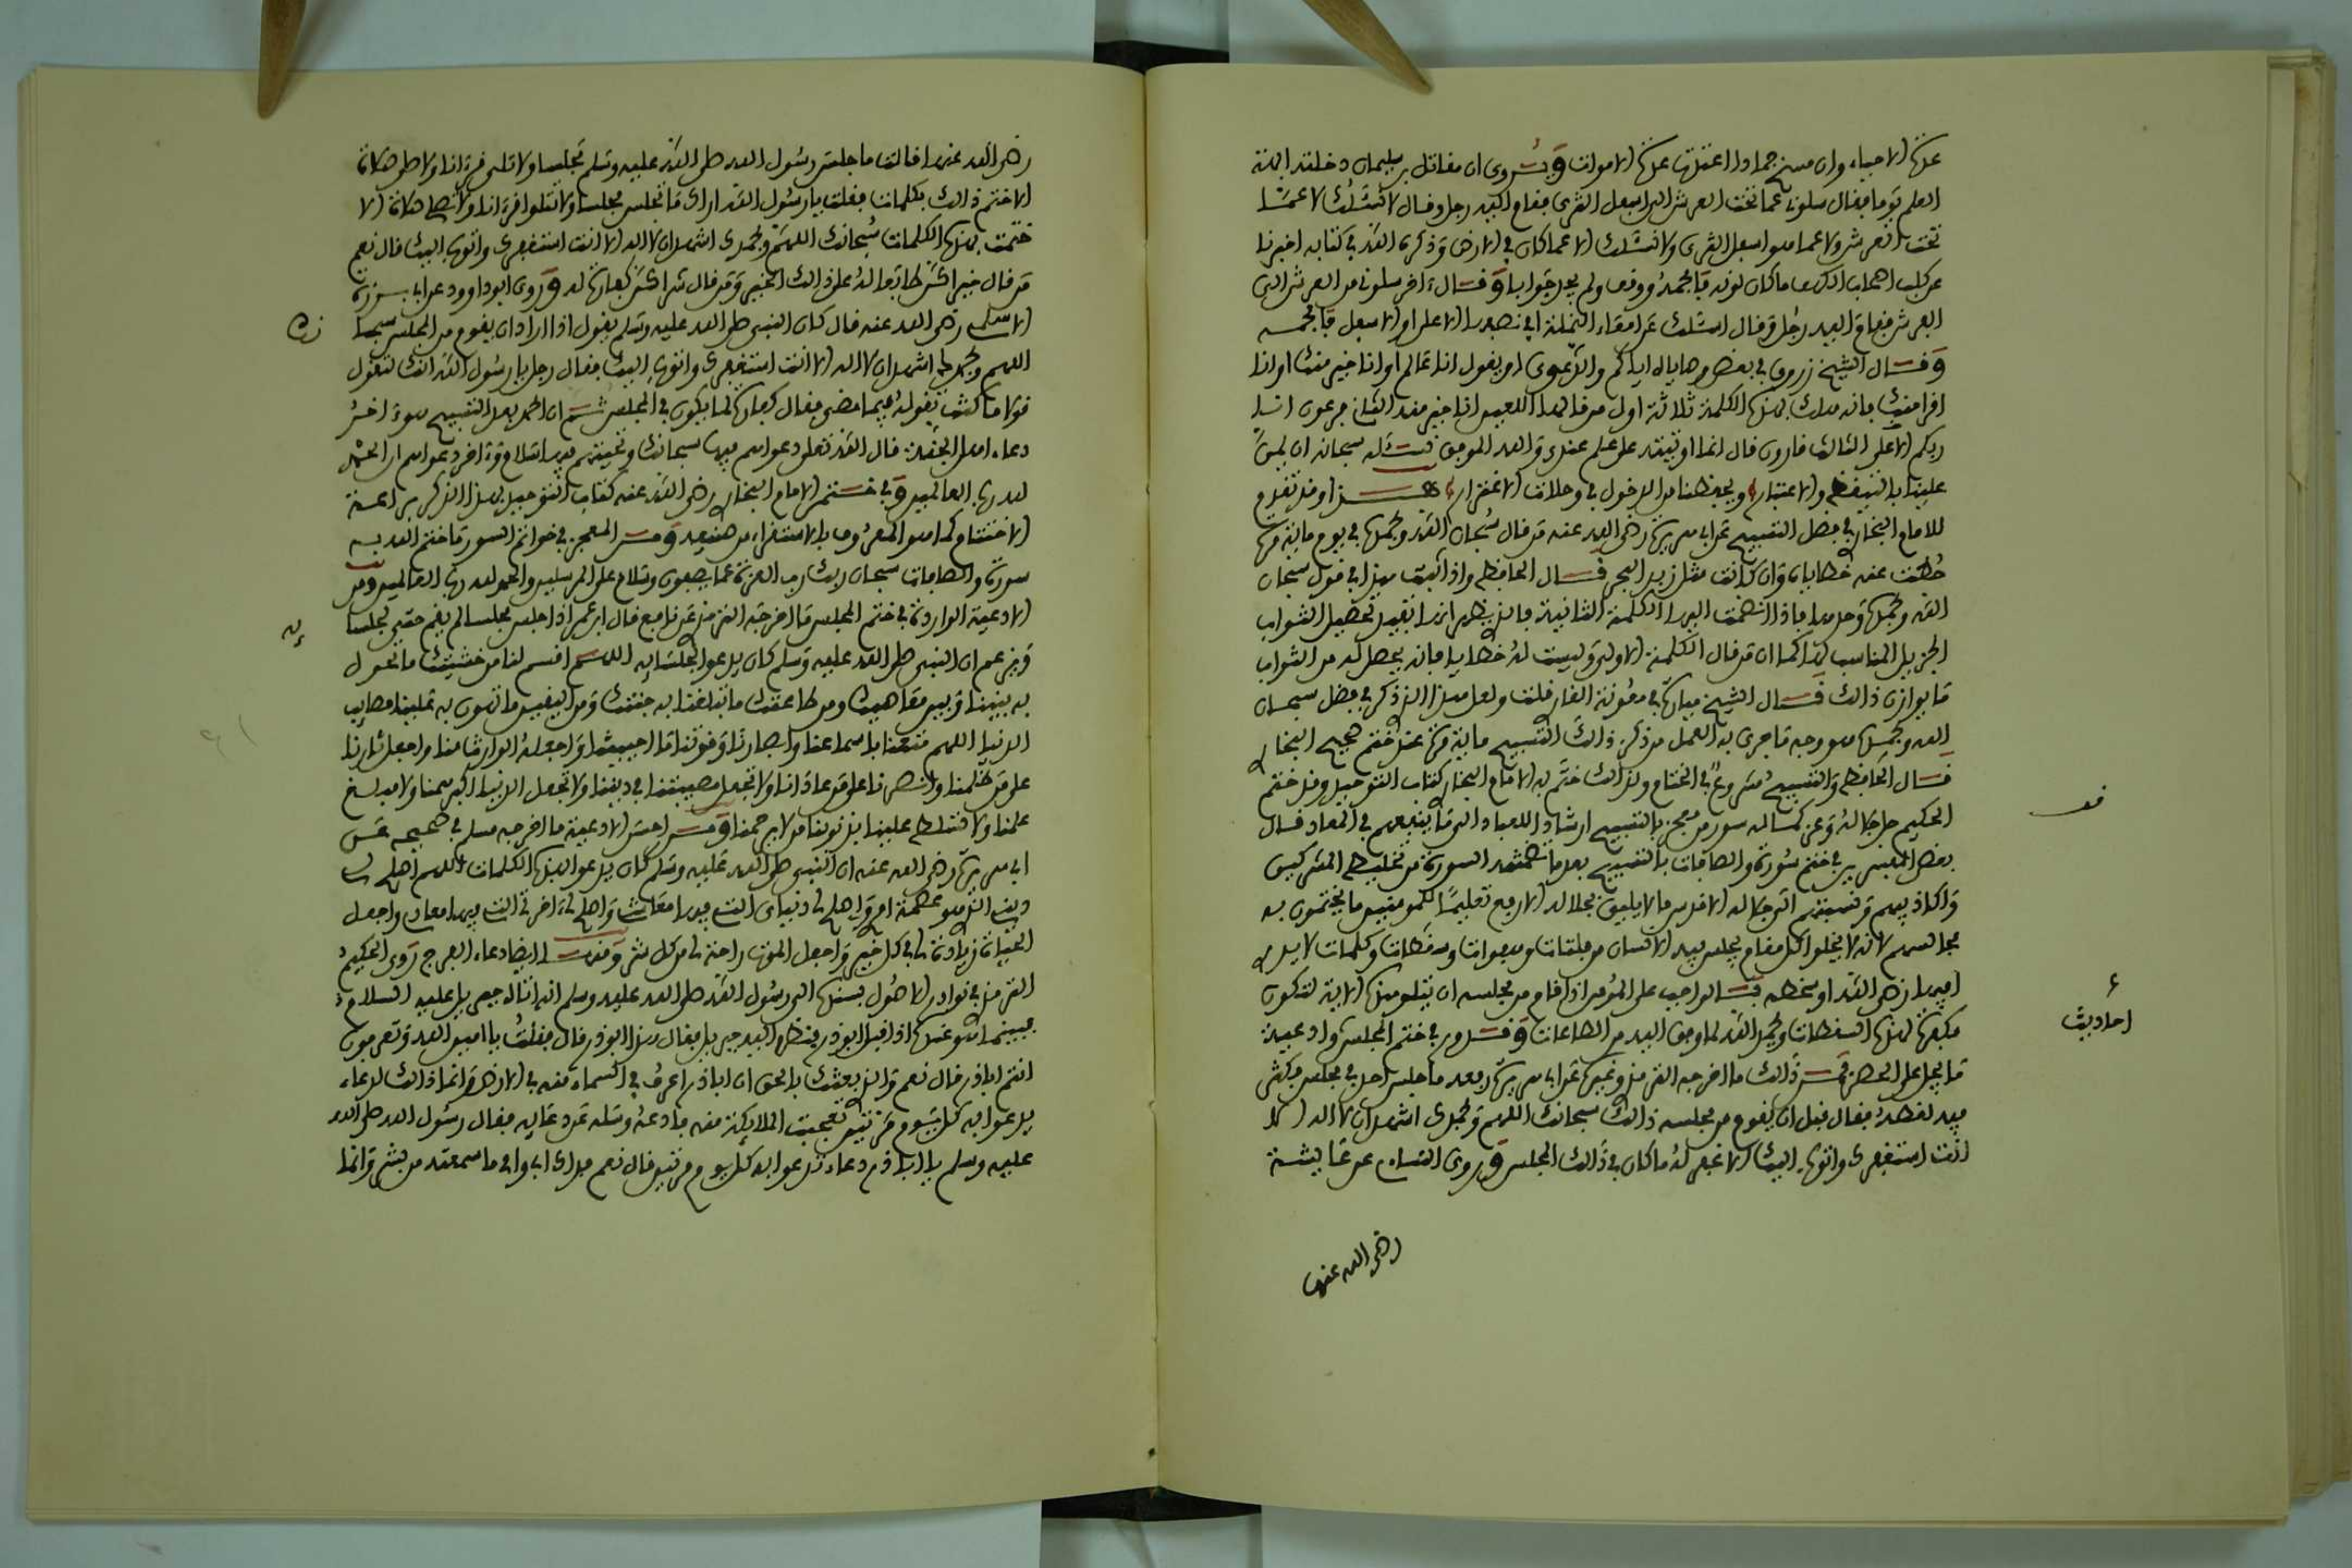 عدتها الاحياء وان مسخ جمادا اعتدت عدة الاموات ويُروى ان مقاتل بن سليمان دخلته ابهة
العلم يوما فقال سلوني عما تحت العرش الى اسفل الثرى فقام اليه رجل وقال لا نسئلك لا عمّا
تحت العرش ولا عما هو اسفل الثرى ولا نسئلك الا عما كان في الارض وذكره الله في كتابه اخبرنا
عن كلب اصحاب الكهف ما كان لونه فافحمه ووقف ولم يجد جوابا وقال اخر سلوني من العرش الى
الفرش فقام اليه رجل وقال اسئلك عن امعاء النملة افي نصفها الاعلى او الاسفل فافحمه
وقال الشيخ زروق في بعض وصاياه اياكم والدعوى او يقول انا عالم او انا خير منك او انا
اقرا منك فانه هلك بهذه الكلمة ثلاثة اول من قالها اللعين انا خير منه الثاني فرعون انا
ربكم الاعلى الثالث قارون قال انما اوتيته على علم عندي والله الموفق نسئله سبحانه ان يمن
علينا بالتيقظ والاعتبار ويحفظنا من الدخول في وحلات الاغترار هذا وقد تقدم
للامام البخاري في فضل التسبيح عن ابي هريرة رضي الله عنه من قال سُبحان الله وبحمده في يوم مائة مرة
حُطت عنه خطاياه وان كانت مثل زبد البحر قال الحافظ واذا ثبت هذا في قول سبحان
الله وبحمده وحدها فاذا انضمت اليها الكلمة الثانية فالذي يظهر انها تفيد تحصيل الثواب
الجزيل المناسب لها كما ان من قال الكلمة الاولى وليست له خطايا فانه يحصل له من الثواب
ما يوازن ذالك قال الشيخ ميارة في معونة القار قلت ولعل هذا الذي ذكر في فضل سبحان
الله وبحمده هو وجه ما جرى به العمل من ذكر ذالك التسبيح مائة مرة عند ختم صحيح البخاري
قال الحافظ والتسبيح مشروع في الختام ولذالك ختم به الامام البخاري كتاب التوحيد وقد ختم
الحكيم جل جلاله وعز كماله سور من بالتسبيح ارشادا للعباد الى ما ينفعهم في المعاد قال
بعض المفسرين في ختم سورة والصافات بالتسبيح بعد ما تضمنته السورة من تخليط المشركين
واكاذيبهم ونسبتهم الى جلاله الاقدس ما لا يليق بجلاله الارفع تعليما للمومنين ما يختمون به
مجالسهم لانه لا يخلوا كل مقام يجلس فيه الانسان من فلتات وهفوات وسقطات وكلمات لا يدري
افيها رضى الله او سخطه فالواجب على المؤمن اذا قام من مجلسه ان يتلو هذه الاية لتكون
مكفرة لهذه السقطات ويحمد الله لما وفق اليه من الطاعات وقد ورد في ختم المجلس ادعية
مما يدل على الحض فمن ذالك ما اخرجه الترمذي وغيره عن ابي هريرة رفعه ما جلس احد في مجلس فكثر
فيه لغطه فقال قبل ان يقوم من مجلسه ذالك سبحانك اللهم وبحمدك اشهد ان لا اله الا
انت استغفرك واتوب اليك الا غفر له ما كان في ذالك المجلس وروى النساءي عن عائشة
رضي الله عنها
احاديث
رضي الله عنها قالت ما جلس رسول الله صلى الله عليه وسلم مجلسا ولا تلى قرءانا ولا صلى صلاة
الا ختم ذالك بكلمات فقلت يا رسول الله اراك ما تجلس مجلسا ولا تتلوا قرءانا ولا تصلي صلاة الا
ختمت بهذه الكلمات سُبحانك اللهم وبحمدك اشهد ان لا اله الا انت استغفرك واتوب اليك قال نعم
من قال خيرا كن طابعا له على ذالك الخير ومن قال شرا كن كفارة له وروى ابو داوود عن ابي برزة
الاسلمي رضي الله عنه قال كان النبي صلى الله عليه وسلم يقول اذا اراد ان يقوم من المجلس سبحانك
اللهم وبحمدك اشهد ان لا اله الا انت استغفرك واتوب اليك فقال رجل يا رسول الله انك لتقول
قولا ما كنت تقوله فيما مضى فقال كفارة لما يكون في المجلس ثم ان الحمد بعد التسبيح هو اخر
دعاء اهل الجنة قال الله تعلى دعواهم فيها سبحانك وتحيتهم فيها سلام واخر دعواهم ان الحمد
لله رب العالمين وفي ختم الامام البخاري رضي الله عنه كتاب التوحيد بهذا الذكر براعة
الاختتام كما هو المعروف بالاستقراء من صنيعه ومن المعجز في خواتم السور ما ختم الله به
سورة والصافات سبحان ربك رب العزة عما يصفون وسلام على المرسلين والحمد لله رب العالمين ومن
الادعية الواردة في ختم المجلس ما اخرجه الترمذي عن نافع قال ابن عمر اذا جلس مجلسا لم يقم حتى لجلسائه
ويزعم ان النبي صلى الله عليه وسلم كان يدعو لجلسائه اللهم اقسم لنا من خشيتك ما تحول
به بيننا وبين معاصيك ومن طاعتك ما تبلغنا به جنتك ومن اليقين ما تهون به علينا مصايب
الدنيا اللهم متعنا باسماعنا وابصارنا وقوتنا ما احييتنا واجعله الوارث منا واجعل ثارنا
على من ظلمنا وانصرنا على من عادانا ولا تجعل مصيبتنا في ديننا ولا تجعل الدنيا اكبر همنا ولا مبلغ
علمنا ولا تسلط علينا بذنوبنا من لا يرحمنا ومن احسن الادعية ما اخرجه مسلم في صحيحه عن
ابي هريرة رضي الله عنه ان النبي صلى الله عليه وسلم كان يدعو بهذه الكلمات اللهم اصلح لي
ديني الذي هو عصمة امري واصلح لي دنياي التي فيها معاشي واصلح لي ءاخرتي التي فيها معادي واجعل
الحياة زيادة لي في كل خير واجعل الموت راحة لي من كل شر ومنها ايضا دعاء الفرج روى الحكيم
الترمذي في نوادر الاصول بسنده الى رسول الله صلى الله عليه وسلم انه اتاه جبريل عليه السلام
فبينما هو عنده اذ اقبل ابو ذر فنظر اليه جبريل فقال هذا ابو ذر قال فقلت يا امين الله وتعرفون
انتم ابا ذر قال نعم والذي بعثك بالحق ان ابا ذر اعرف في السماء منه في الارض وانما ذالك لدعاء
يدعوا به كل يوم مرتين تعجبت الملايكة منه فادعه وسله عن دعايه فقال رسول الله صلى الله
عليه وسلم يا ابا ذر دعاء تدعوا به كل يوم مرتين قال نعم فداك ابي وامي ما سمعته من بشر وانما